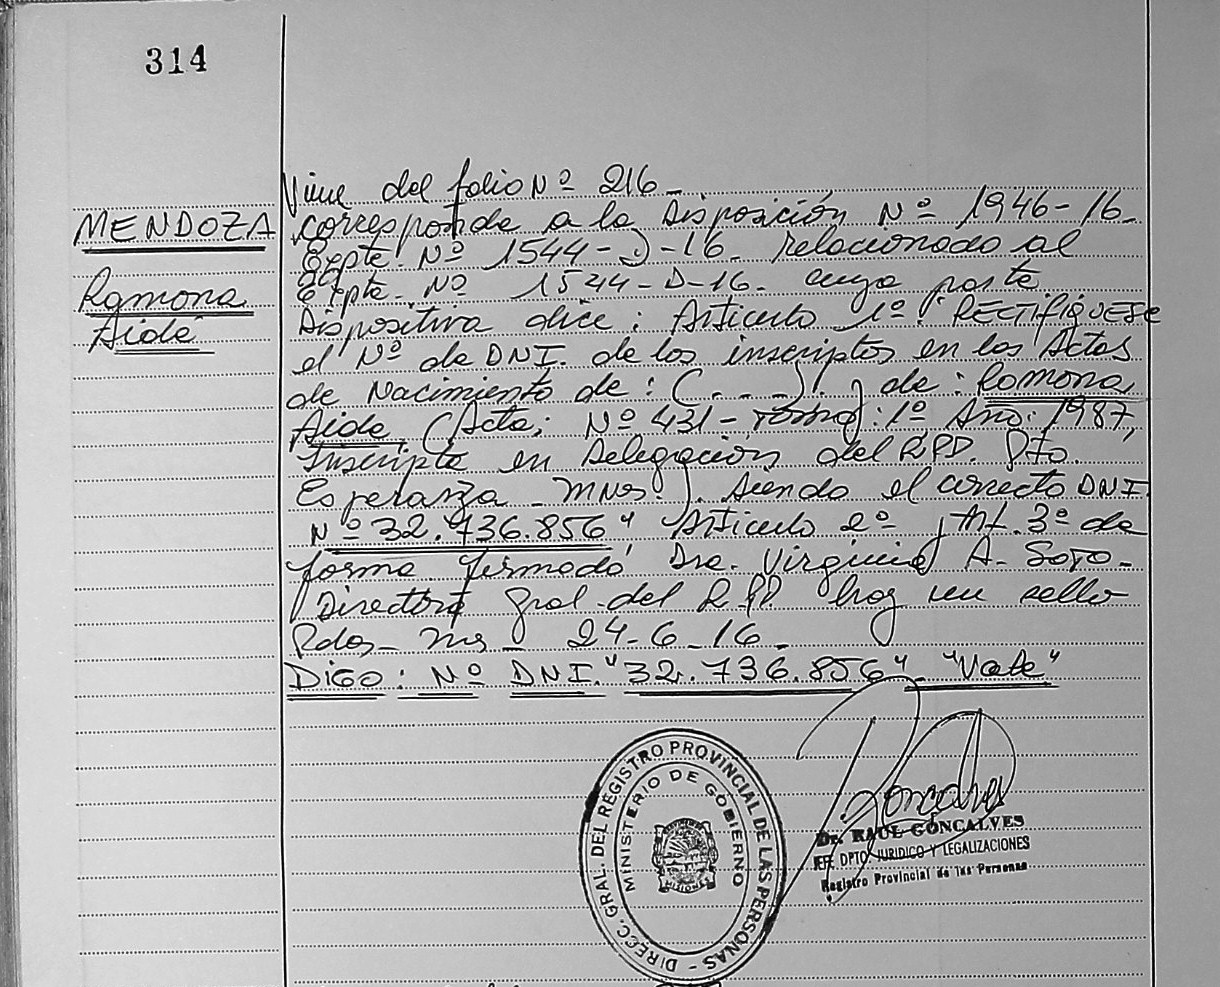 314
MENDOZA
Ramona
Aidé
Viene del folio Nº 216-
corresponde a la Disposición Nº 1946-16-
Expte. Nº 1544-D-16. relacionado al
Expte. Nº 1544-D-16- cuya parte
Dispositiva dice: Articulo 1º: RECTIFIQUESE
el Nº de DNI. de los inscriptos en las Actas
de Nacimiento de: (...) de: Ramona
Aide (Acta; Nº 431-Tomo: 1º Año: 1987,
Inscripta en Delegación del RPP. Dto
Esperanza-MNes.). siendo el correcto DNI.
Nº 32.736.856" Articulo 2º, Art. 3º de
forma firmado Dra. Virginia A. Soto-
Directora Gral-del R.P.P. hay un sello
Pdas- Ms- 24-6-16-
DIGO: Nº DNI. "32.736.856" "Vale"
DIRECC. GRAL. DEL REGISTRO PROVINCIAL DE LAS PERSONAS -
MINISTERIO DE GOBIERNO
MISIONES
Goncalves
Dr. RAUL GONCALVES
JEF. DPTO. JURIDICO Y LEGALIZACIONES
Registro Provincial de las Personas